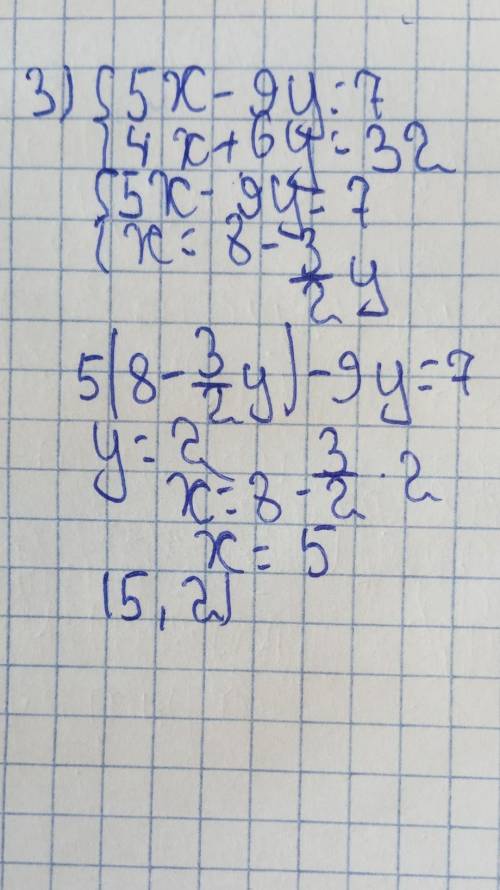 3) { 5x - 9y = 7
4x + 6y = 32
{ 5x - 9y = 7
x = 8 - 3/2 y
5(8 - 3/2 y) - 9y = 7
y = 2
x = 8 - 3/2 · 2
x = 5
(5, 2)